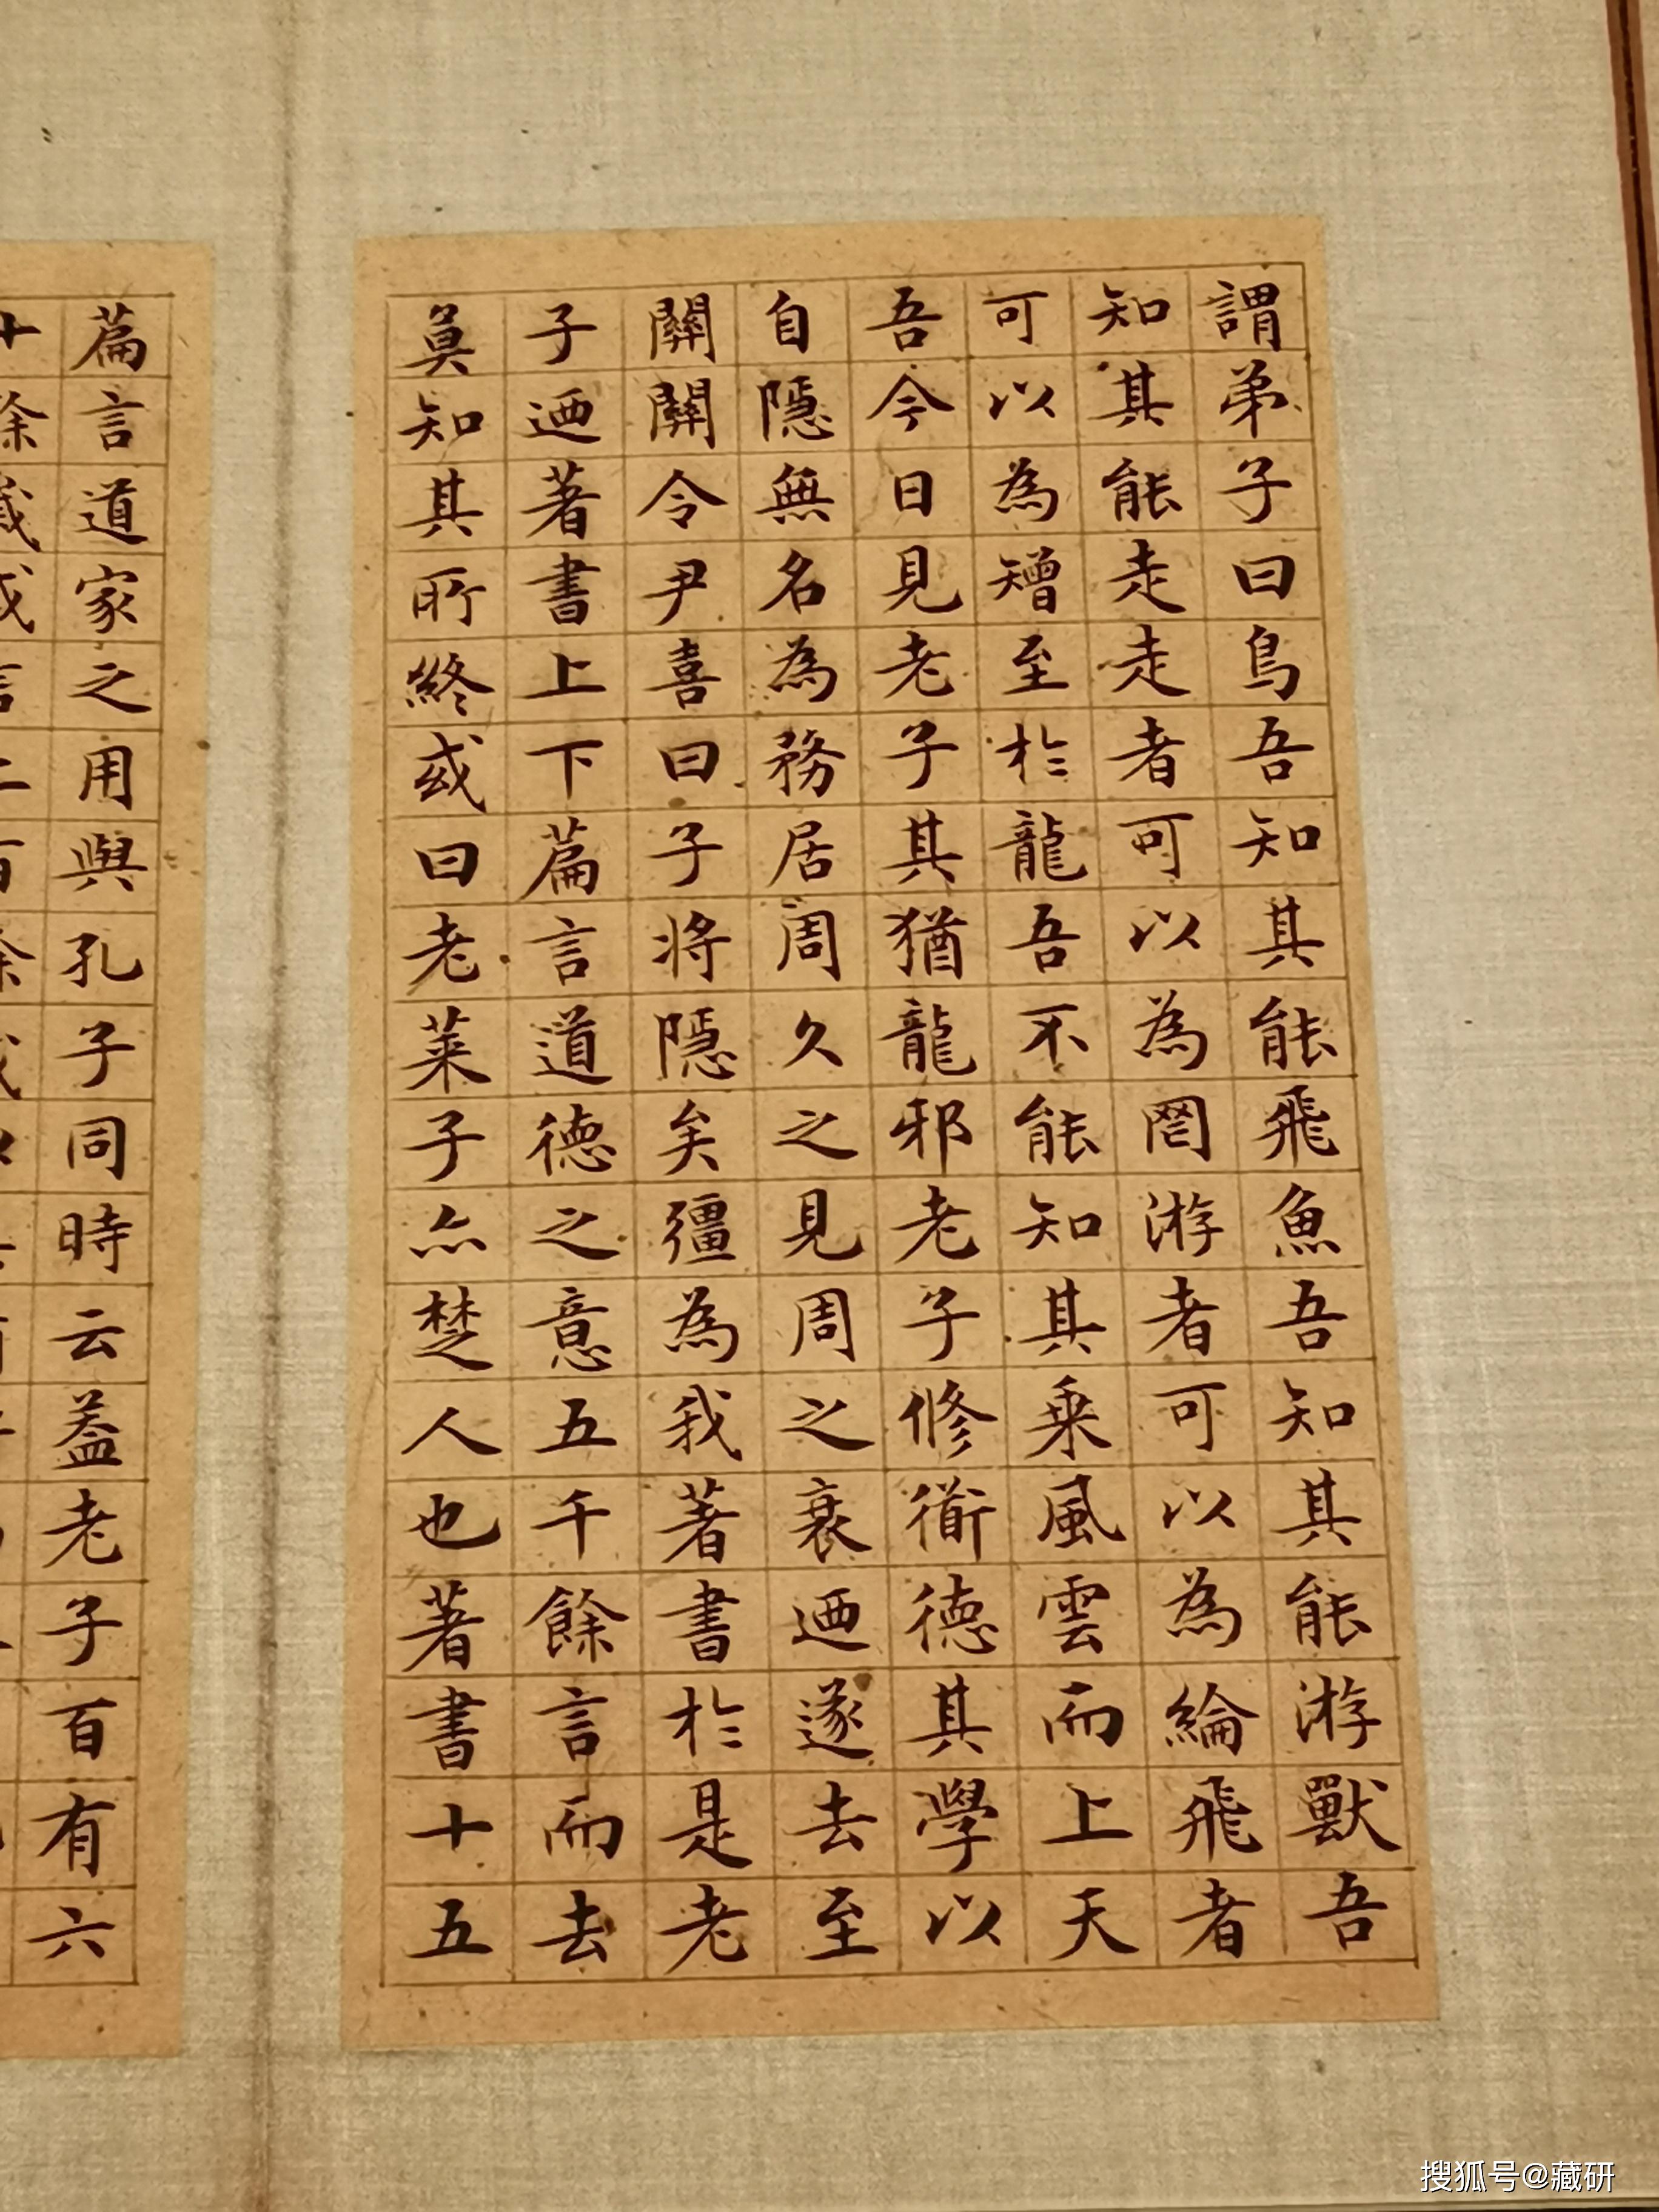 謂弟子曰鳥吾知其能飛魚吾知其能游獸吾
知其能走走者可以為罔游者可以為綸飛者
可以為矰至於龍吾不能知其乘風雲而上天
吾今日見老子其猶龍邪老子修衜德其學以
自隱無名為務居周久之見周之衰迺遂去至
關關令尹喜曰子將隱矣彊為我著書於是老
子迺著書上下篇言道德之意五千餘言而去
莫知其所終或曰老萊子亦楚人也著書十五
篇言道家之用與孔子同時云蓋老子百有六
搜狐号@藏研